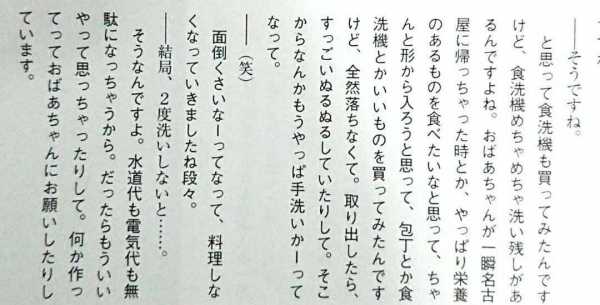 ――そうですね。
と思って食洗機も買ってみたんです
けど、食洗機めちゃめちゃ洗い残しがあ
るんですよね。おばあちゃんが一瞬名古
屋に帰っちゃった時とか、やっぱり栄養
のあるものを食べたいなと思って、ちゃ
んと形から入ろうと思って、包丁とか食
洗機とかいいものを買ってみたんです
けど、全然落ちなくて。取り出したら、
すっごいぬるぬるしていたりして。そこ
からなんかもうやっぱ手洗いかーって
なって。
――（笑）
面倒くさいなーってなって、料理しな
くなっていきましたね段々。
――結局、２度洗いしないと……。
そうなんですよ。水道代も電気代も無
駄になっちゃうから。だったらもういい
やって思っちゃったりして。何か作っ
てっておばあちゃんにお願いしたりし
ています。